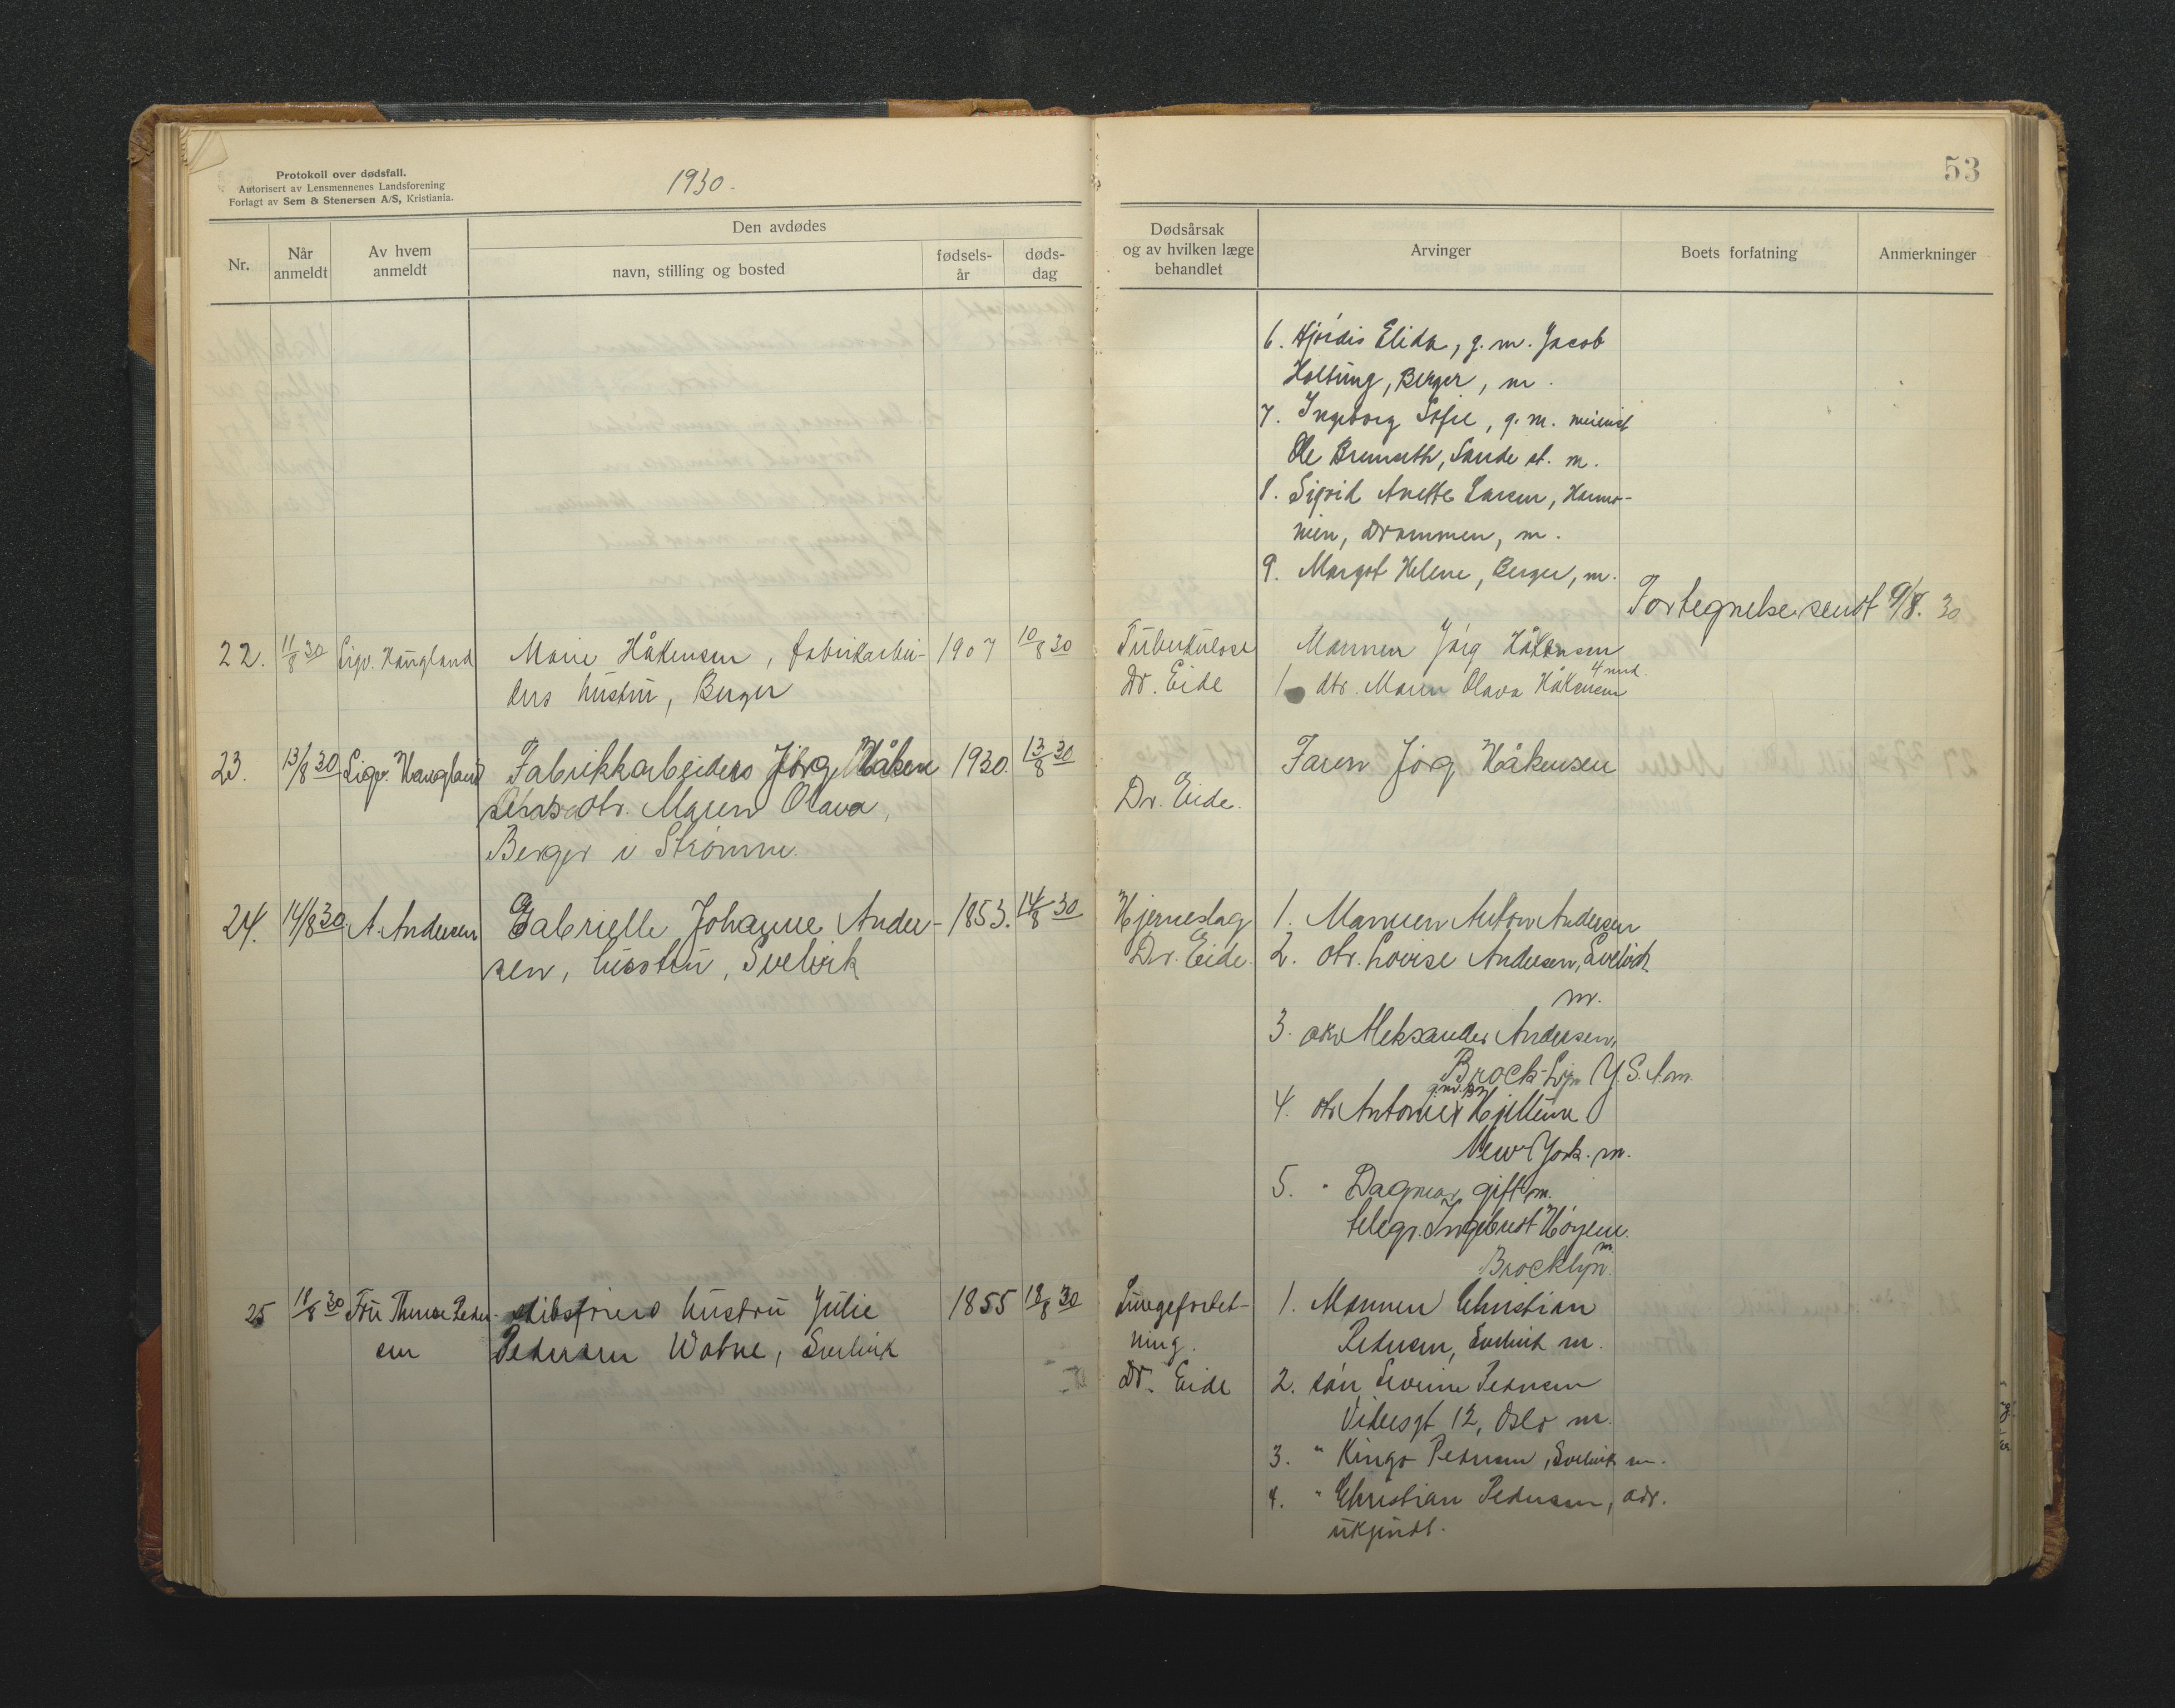 Protokoll over dødsfall.
Autorisert av Lensmennenes Landsforening
Forlagt av Sem & Stenersen A/S, Kristiania.
1930.
Nr.
Når anmeldt
Av hvem anmeldt
Den avdødes
navn, stilling og bosted
fødsels-år
døds-dag
22. 11/8 30 Sigv. Haugland Marie Håkensen, fabrikarbei- 1907 10/8 30
ders hustru, Berger
23. 13/8 30 Sigv. Haugland Fabrikkarbeiders Jörg Håken 1930. 13/8 30
sens dtr. Maren Olava,
Berger i Strømm.
24. 14/8 30. A. Andersen Gabrielle Johanne Ander- 1853. 14/8 30
sen, hustru, Svelvik
25 18/8 30 Fru Peder- hustru Julie 1855 18/8 30
sen Pedersen Svelvik
53
Dødsårsak
og av hvilken læge
behandlet
Arvinger
Boets forfatning
Anmerkninger
6. Hjørdis Elida, g. m. Jacob
Holtung, Berger, m.
7. Ingeborg Sofie, g. m. meierist
Ole Sande st. m.
8. Sigrid Anette Larsen, Harmo-
nien, Drammen, m.
9. Margot Helene, Berger, m.
Fortegnelse sendt 9/8. 30
Tuberkulose Mannen Jörg Håkensen
4 mnd.
Dr. Eide 1 dtr. Maren Olava Håkensen
Faren Jörg Håkensen
Dr. Eide.
Hjerneslag 1. Mannen Anton Andersen
Dr. Eide. 2. dtr. Lovise Andersen, Svelvik
m.
3. Aleksander Andersen,
Brock-Lyn
g.m.
4. dtr Antonie
New York. m.
5. " Dagmar gift m.
telegr. Ingebret Høyem.
m.
Brocklyn.
Lungefortet- 1. Mannen Christian
ning. Pedersen, Svelvik m.
Dr. Eide 2. søn Severin Pedersen
12, Oslo m.
3. " Kingo Pedersen, Svelvik m.
4. " Christian Pedersen, adr.
ukjendt.